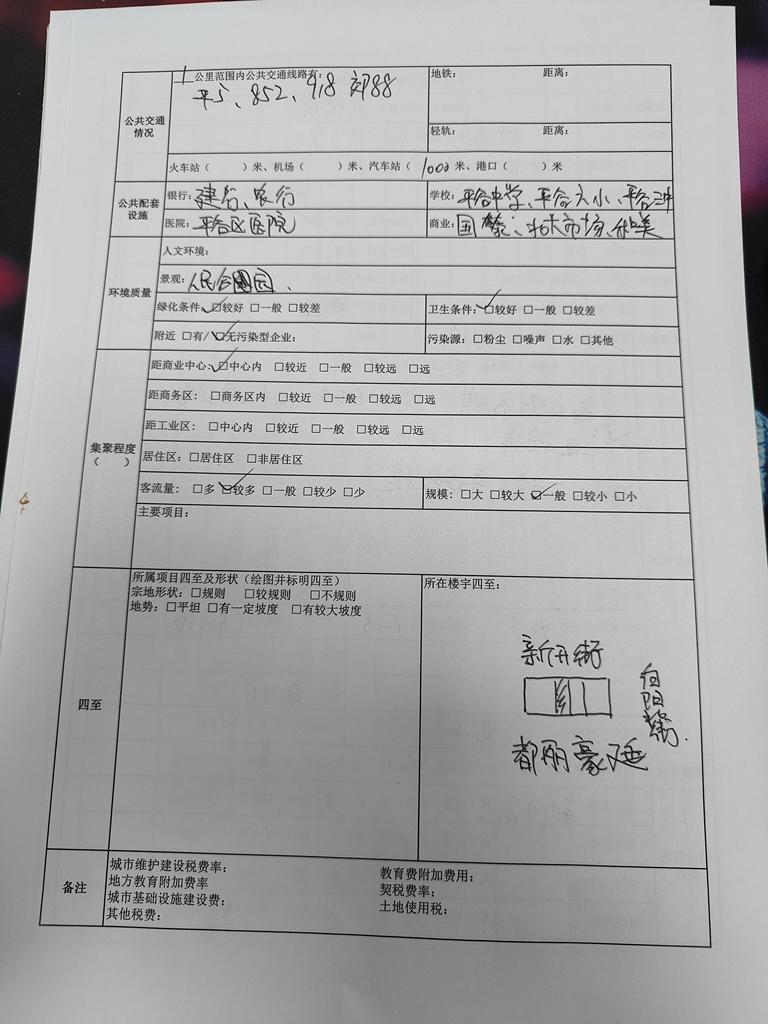 公共交通情况
1公里范围内公共交通线路有:
平5、852、918 郊88
地铁: 距离:
轻轨: 距离:
火车站( )米、机场( )米、汽车站(1000米、港口( )米
公共配套设施
银行:建行、农行
学校:平谷中学、平谷六小、平谷三中
医院:平谷区医院
商业:国泰、北大市场、和美
环境质量
人文环境:
景观:人民公园
绿化条件:☑较好 □一般 □较差
卫生条件:☑较好 □一般 □较差
附近 □有/☑无污染型企业:
污染源:□粉尘 □噪声 □水 □其他
集聚程度
( )
距商业中心:☑中心内 □较近 □一般 □较远 □远
距商务区: □商务区内 □较近 □一般 □较远 □远
距工业区: □中心内 □较近 □一般 □较远 □远
居住区:□居住区 □非居住区
客流量: □多 ☑较多 □一般 □较少 □少
规模:□大 □较大 ☑一般 □较小 □小
主要项目:
四至
所属项目四至及形状(绘图并标明四至)
宗地形状:□规则 □较规则 □不规则
地势:□平坦 □有一定坡度 □有较大坡度
所在楼宇四至:
新开街
向阳街
都丽豪廷
备注
城市维护建设税费率:
教育费附加费用:
地方教育附加费率
契税费率:
城市基础设施建设费:
土地使用税:
其他税费: